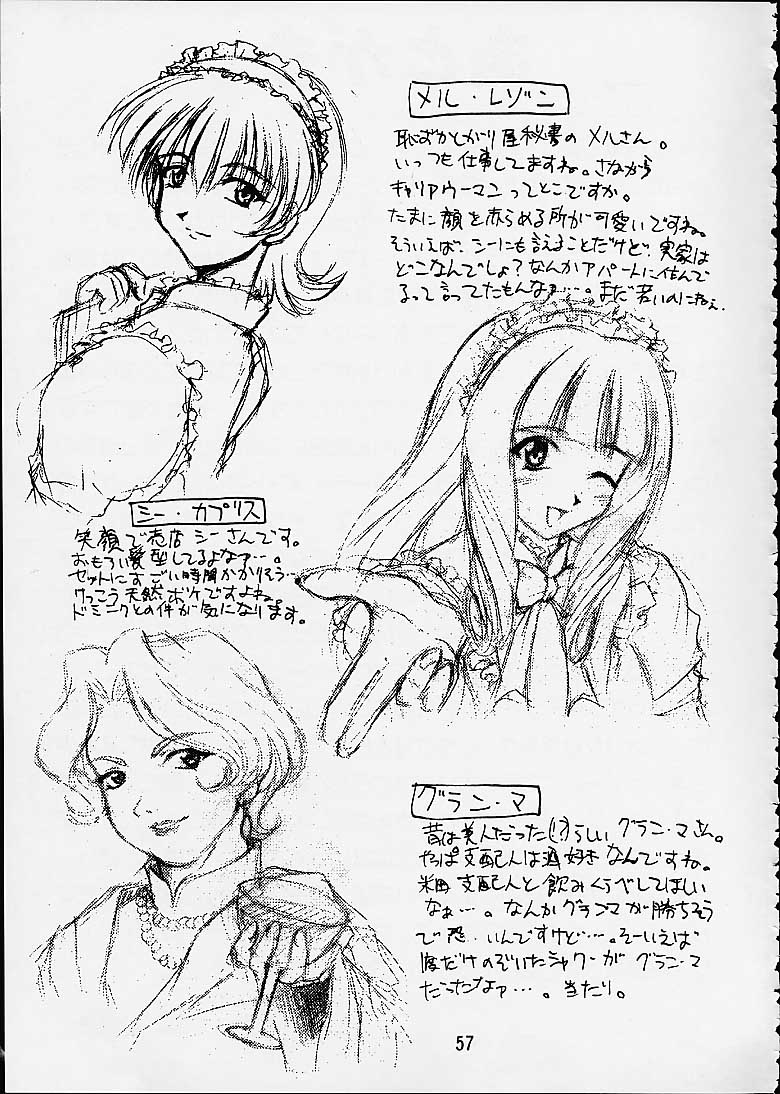 メル・レゾン
恥ずかしがり屋秘書の メルさん。
いっつも仕事してますね。さながら
キャリアウーマンってとこですか。
たまに顔を赤らめる所が可愛いですね。
そういえば、シーにも言えることだけど、実家は
どこなんでしょ？なんかアパートに住んで
るって言ってたもんなぁ…。まだ若いのにねぇ。
シー・カプリス
笑顔で売店 シーさんです。
おもろい髪型してるよなァ…。
セットにすごい時間かかりそう…
けっこう天然ボケですよね。
ドミニクとの件が気になります。
グラン・マ
昔は美人だった(!?)らしい グラン・マさん。
やっぱ支配人は酒好きなんですね。
米田支配人と飲みくらべしてほしい
なぁ…。なんかグランマが勝ちそう
で恐いんですけど…。そーいえば
度だけのぞいたシャワーが グラン・マ
だったなァ…。当たり。
57